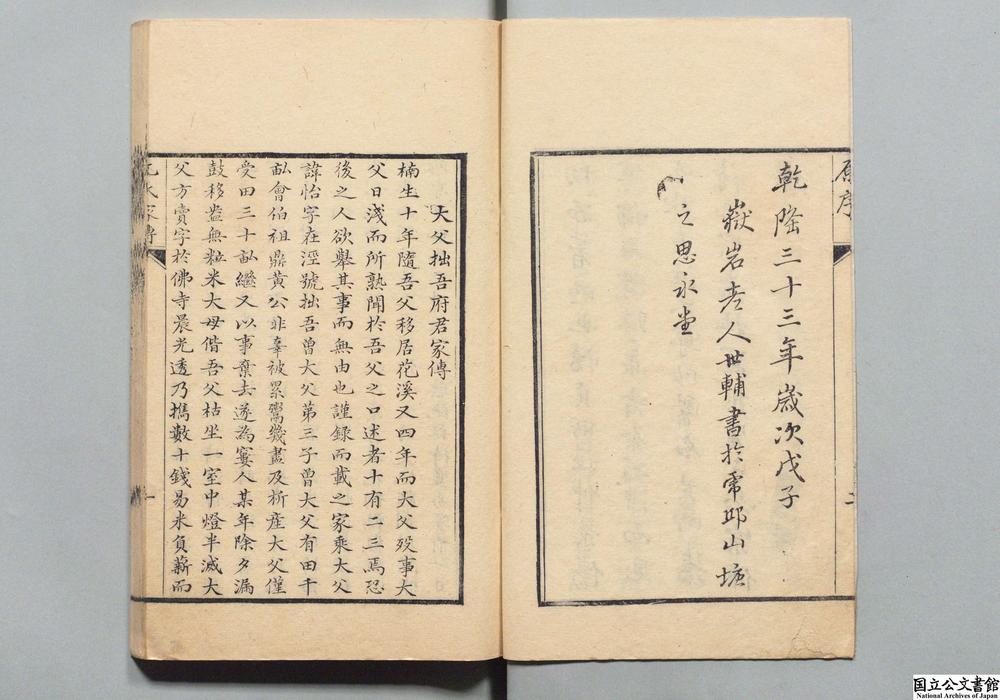 原序
乾隆三十三年歲次戊子
嶽岩老人世輔書於常邱山塘
之思永堂
二
大父拙吾府君家傳
楠生十年隨吾父移居花溪又四年而大父歿事大
父日淺而所熟聞於吾父之口述者十有二三焉恐
後之人欲舉其事而無由也謹録而載之家乘大父
諱怡字在涇號拙吾曾大父第三子曾大父有田千
畆會伯祖鼎黄公非辜被累鬻幾盡及析産大父僅
受田三十畆繼又以事棄去遂為窶人某年除夕漏
鼓移盎無粒米大母偕吾父枯坐一室中燈半滅大
父方賣字於佛寺晨光透乃攜數十錢易米負薪而
家傳
一
国立公文書館
National Archives of Japan